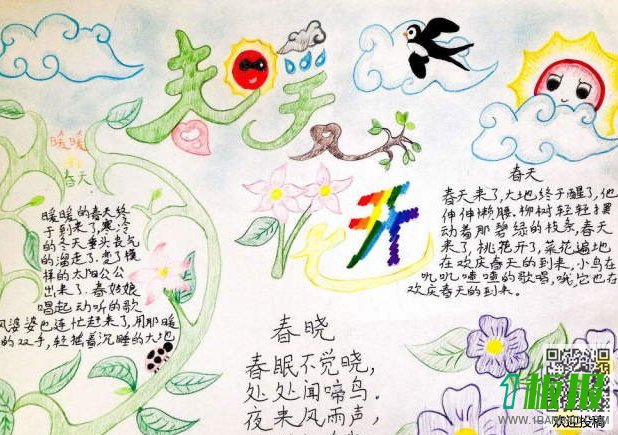 春暖
花开
暖暖
的
春天
暖暖的春天终
于到来了,寒冷
的冬天垂头丧气
的溜走了.变了模
样的太阳公公
出来了.春姑娘
唱起动听的歌
风婆婆也连忙赶来了,用那暖
的双手,轻摇着沉睡的大地
春天
春天来了,大地终于醒了,他
伸伸懒腰.柳树轻轻摆
动着那碧绿的枝条,春天
来了,桃花开了,菜花遍地
在欢庆春天的到来,小鸟在
叽叽喳喳的歌唱,哦,它也在
欢庆春天的到来。
春晓
春眠不觉晓,
处处闻啼鸟.
夜来风雨声,
1板报
欢迎投稿